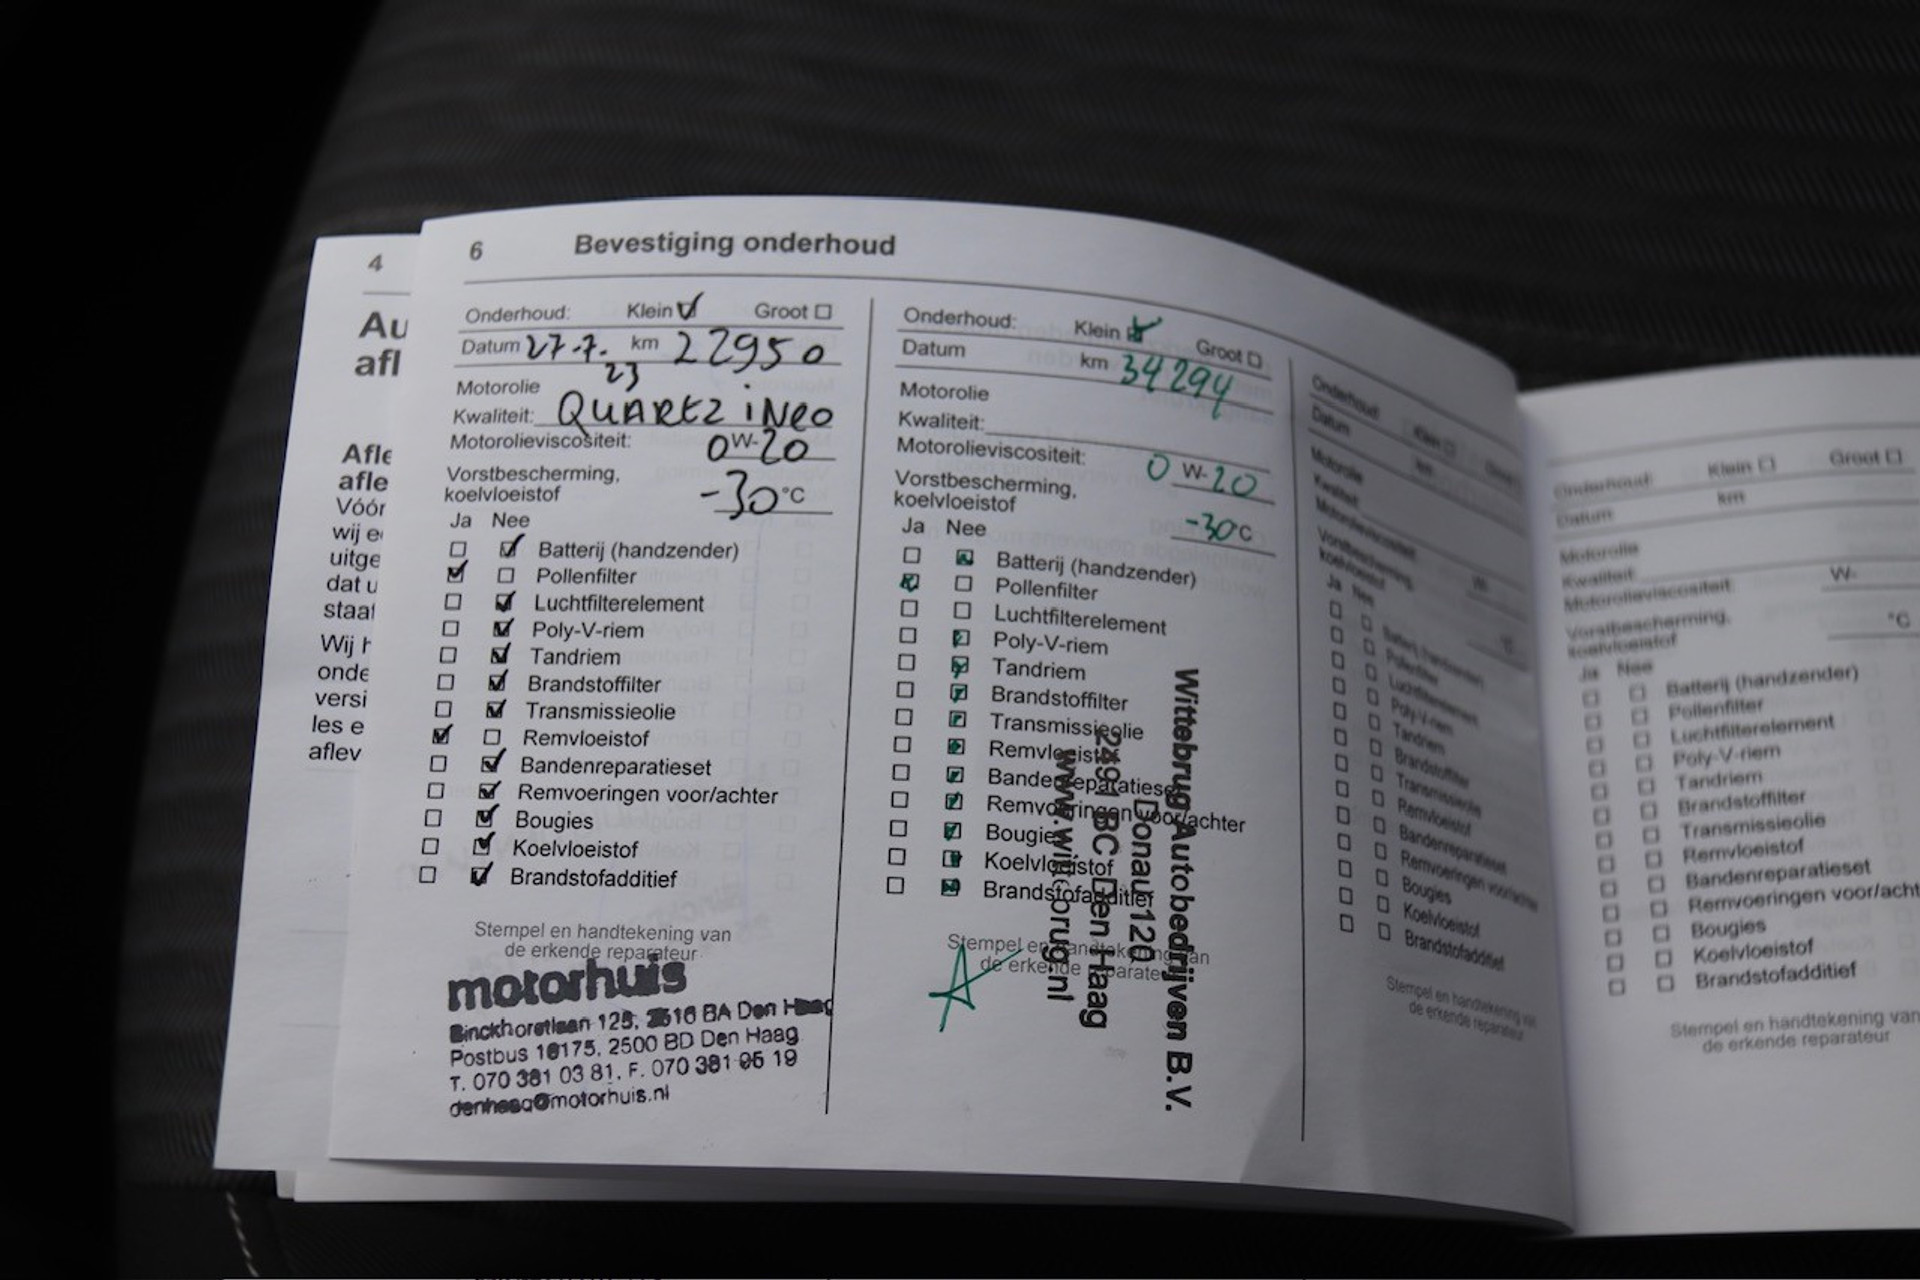 4
Au
afl
Afle
afle
Vóór
wij e
uitge
dat u
staat
Wij h
onde
versi
les e
aflev
6 Bevestiging onderhoud
Onderhoud: Klein Groot
Datum 27-7-23 km 22950
Motorolie
Kwaliteit: QUARTZ iNEO
Motorolieviscositeit: 0 W-20
Vorstbescherming,
koelvloeistof -30 °C
Ja Nee
Batterij (handzender)
Pollenfilter
Luchtfilterelement
Poly-V-riem
Tandriem
Brandstoffilter
Transmissieolie
Remvloeistof
Bandenreparatieset
Remvoeringen voor/achter
Bougies
Koelvloeistof
Brandstofadditief
Stempel en handtekening van
de erkende reparateur
motorhuis
Binckhorstlaan 125, 2516 BA Den Haag
Postbus 16175, 2500 BD Den Haag
T. 070 381 03 81, F. 070 381 06 19
denhaag@motorhuis.nl
Onderhoud: Klein Groot
Datum km 34294
Motorolie
Kwaliteit:
Motorolieviscositeit: 0 W-20
Vorstbescherming,
koelvloeistof -30°C
Ja Nee
Batterij (handzender)
Pollenfilter
Luchtfilterelement
Poly-V-riem
Tandriem
Brandstoffilter
Transmissieolie
Remvloeistof
Bandenreparatieset
Remvoeringen voor/achter
Bougies
Koelvloeistof
Brandstofadditief
Stempel en handtekening van
de erkende reparateur
Wittebrug Autobedrijven B.V.
Donau 120
2491 BC Den Haag
www.wittebrug.nl
Onderhoud: Klein
Datum km
Motorolie
Kwaliteit:
Motorolieviscositeit:
Vorstbescherming,
koelvloeistof
Ja Nee
Batterij (handzender)
Pollenfilter
Luchtfilterelement
Poly-V-riem
Tandriem
Brandstoffilter
Transmissieolie
Remvloeistof
Bandenreparatieset
Remvoeringen voor/achter
Bougies
Koelvloeistof
Brandstofadditief
Stempel en handtekening van
de erkende reparateur
Onderhoud: Klein Groot
Datum km
Motorolie
Kwaliteit:
Motorolieviscositeit: W-
Vorstbescherming,
koelvloeistof °C
Ja Nee
Batterij (handzender)
Pollenfilter
Luchtfilterelement
Poly-V-riem
Tandriem
Brandstoffilter
Transmissieolie
Remvloeistof
Bandenreparatieset
Remvoeringen voor/acht
Bougies
Koelvloeistof
Brandstofadditief
Stempel en handtekening van
de erkende reparateur